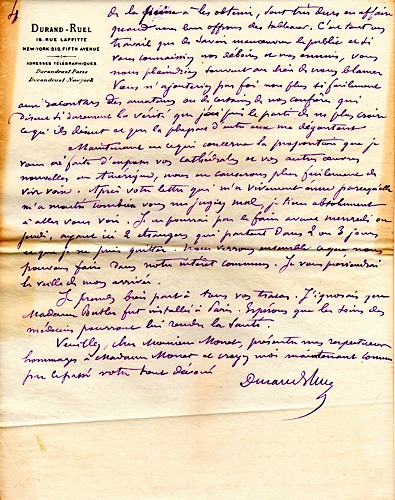 4
DURAND-RUEL
16, RUE LAFFITTE
NEW-YORK 315, FIFTH AVENUE
ADRESSES TÉLÉGRAPHIQUES
Durandruel Paris
Durandruel New york
de la peine à les obtenir, sont très durs en affaires
quand nous leur offrons des tableaux. C'est tout un
travail que de savoir manœuvrer le public et si
vous connaissiez nos déboires et nos ennuis, vous
nous plaindriez souvent au lieu de nous blâmer
Vous n'ajouteriez pas foi non plus si facilement
aux racontars des amateurs ou de certains de nos confrères qui
disent si rarement la vérité que j'ai pris le parti de ne plus croire
ce qu'ils disent et que la plupart d'entre eux me dégoûtent
Maintenant en ce qui concerne la proposition que je
vous ai faite d'emporter vos cathédrales et vos autres œuvres
nouvelles en Amérique, nous en causerons plus facilement de
vive voix. Après votre lettre qui m'a vivement ému parce qu'elle
m'a montré combien vous me jugiez mal, je tiens absolument
à aller vous voir. Je ne pourrai pas le faire avant mercredi ou
jeudi, ayant ici 2 étrangers qui partent dans 2 ou 3 jours
et que je ne puis quitter. Nous verrons ensemble ce que nous
pouvons faire dans notre intérêt commun. Je vous préviendrai
la veille de mon arrivée.
Je prends bien part à tous vos tracas. J'ignorais que
Madame Butler fut installée à Paris. Espérons que les soins des
médecins pourront lui rendre la santé.
Veuillez, cher Monsieur Monet, présenter mes respectueux
hommages à Madame Monet et croyez moi maintenant comme
par le passé votre tout dévoué
Durand-Ruel